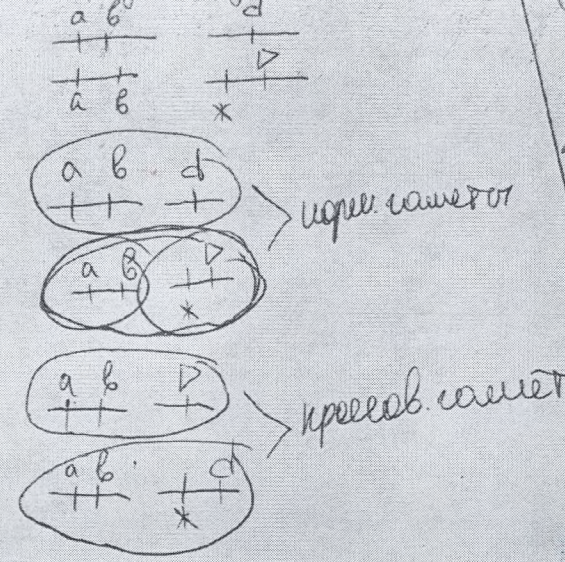 a b d
D
a b *
a b d
норм. гаметы
a b D
*
a b D
кроссов. гамет
a b d
*